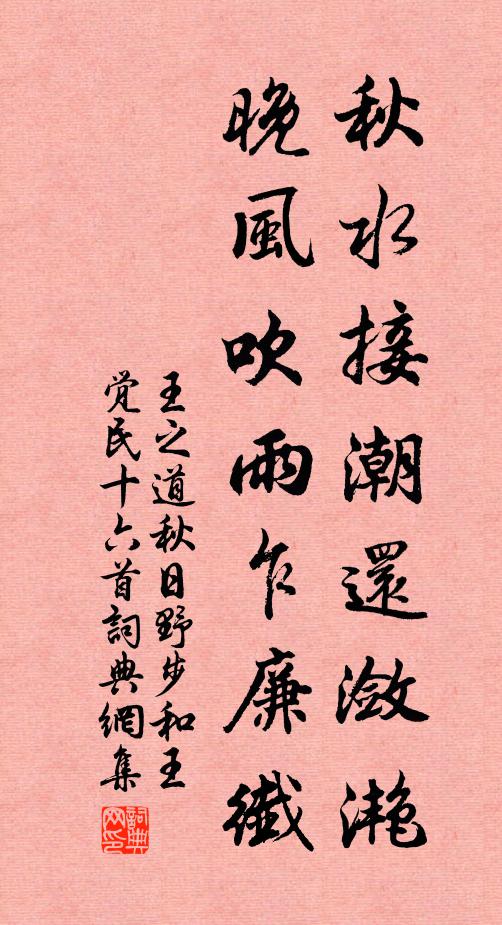 秋水接潮還瀲灔
晚風吹雨乍廉纖
王之道秋日野步和王
覚民十六首詞典網集
詞典网印